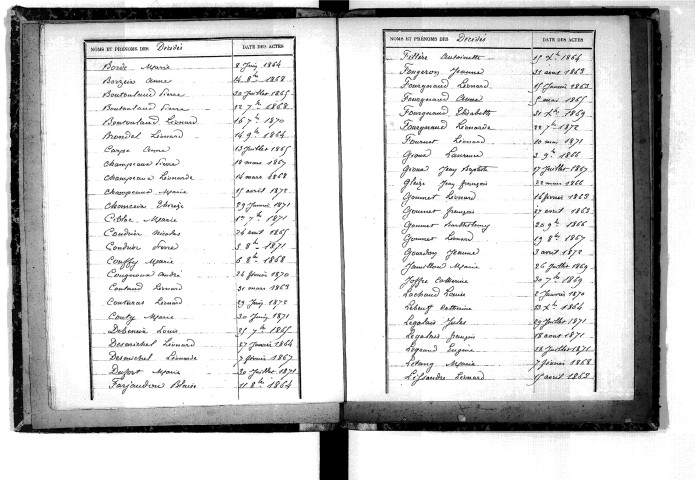 NOMS ET PRÉNOMS DES Décédés DATE DES ACTES
Borde Marie 8 Juin 1864
Anne 14 8bre 1868
Boutouland Pierre 30 Juillet 1865
Boutouland Pierre 22 7bre 1868
Boutouland Léonard 16 7bre 1870
Brondel Léonard 14 9bre 1864
Carpe Anne 13 Juillet 1865
Champeaux Pierre 18 mars 1867
Champeaux Léonarde 14 mars 1868
Champeaux Marie 15 avril 1872
29 Janvier 1871
Marie 1er 7bre 1871
Coudrier Nicolas 26 aout 1865
Coudrier Pierre 3 8bre 1871
Couffy Marie 6 8bre 1868
Cougnoux André 26 février 1870
Coutaud Léonard 31 mars 1863
Couteras Léonard 29 Juin 1872
Couty Marie 30 Juin 1871
Louis 25 7bre 1865
Desmichel Léonard 27 Janvier 1864
Desmichel Léonarde 7 février 1867
Dufort Marie 30 Juillet 1871
Farjaudou Blaise 11 8bre 1864
NOMS ET PRÉNOMS DES Décédés DATE DES ACTES
Fillère Antoinette 15 Xbre 1864
Fougeron Jeanne 31 aout 1863
Fourgnaud Léonard 15 Janvier 1863
Fourgnaud Anne 5 mai 1865
Fourgnaud Elisabeth 31 Xbre 1869
Fourgnaud Léonarde 22 7bre 1872
Fournet Léonard 10 mai 1871
Giroux Laurence 3 9bre 1866
Giroux Jean Baptiste 17 Juillet 1867
Gleize Jean françois 22 mars 1866
Gounet Léonard 16 février 1863
Gounet françois 27 avril 1863
Gounet Barthélemy 20 9bre 1866
Gounet Léonard 19 8bre 1867
Gourdon Jeanne 3 avril 1872
Marie 26 Juillet 1869
Joffre Catherine 30 7bre 1869
Lachaud Louise 2 Janvier 1870
Catherine 23 Xbre 1864
Legalais Jules 29 Juillet 1871
Legalais françois 18 aout 1871
Legrand Eugène 28 Juillet 1871
Létang Marie 7 février 1868
Lissandre Léonard 15 avril 1863